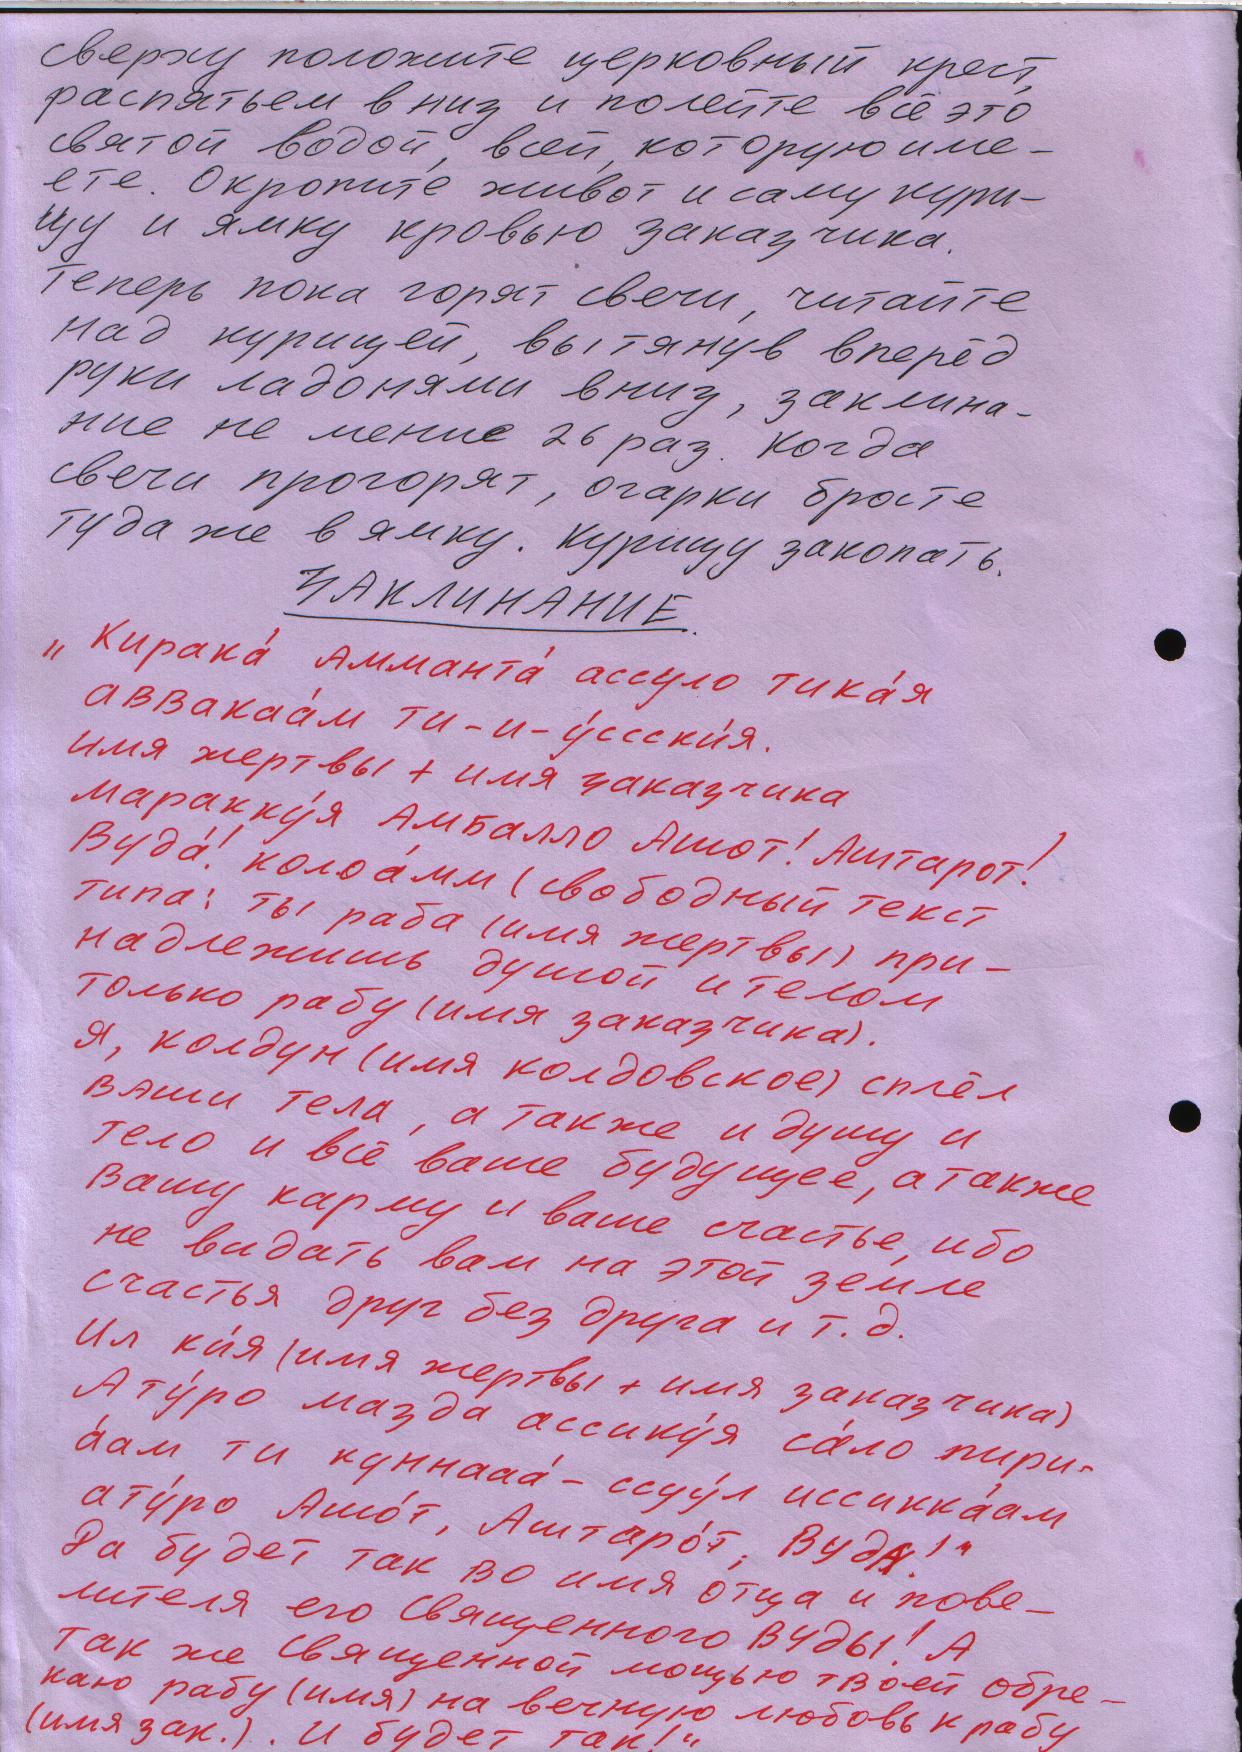 сверху положите церковный крест,
распятьем в низ и полейте всё это
святой водой, всей, которую име-
ете. Окропите живот и саму кури-
цу и ямку кровью заказчика.
Теперь пока горят свечи, читайте
над курицей, вытянув вперёд
руки ладонями вниз, заклина-
ние не менее 26 раз. Когда
свечи прогорят, огарки бросте
туда же в ямку. Курицу закопать.
ЗАКЛИНАНИЕ.
„Кирака́ Амманта́ ассуло тика́я
аввакаа́м ти-и-у́ссски́я.
имя жертвы + имя заказчика
маракку́я Амбалло Ашот! Аштарот!
Вуда́! колоа́мм (свободный текст
типа: ты раба (имя жертвы) при-
надлежишь душой и телом
только рабу (имя заказчика).
Я, колдун (имя колдовское) сплёл
ваши тела, а также и душу и
тело и всё ваше будущее, а также
Вашу карму и ваше счастье, ибо
не видать вам на этой земле
счастья друг без друга и т.д.
Ил ки́я (имя жертвы + имя заказчика)
Ату́ро мазда ассику́я са́ло пири-
а́ам ти куннааа́-ссуу́л иссикка́ам
ату́ро Ашо́т, Аштаро́т, Вуда!"
Да будет так во имя отца и пове-
лителя его Священного Вуды! А
так же Священной мощью твоей обре-
каю рабу (имя) на вечную любовь к рабу
(имя зак.). И будет так!"